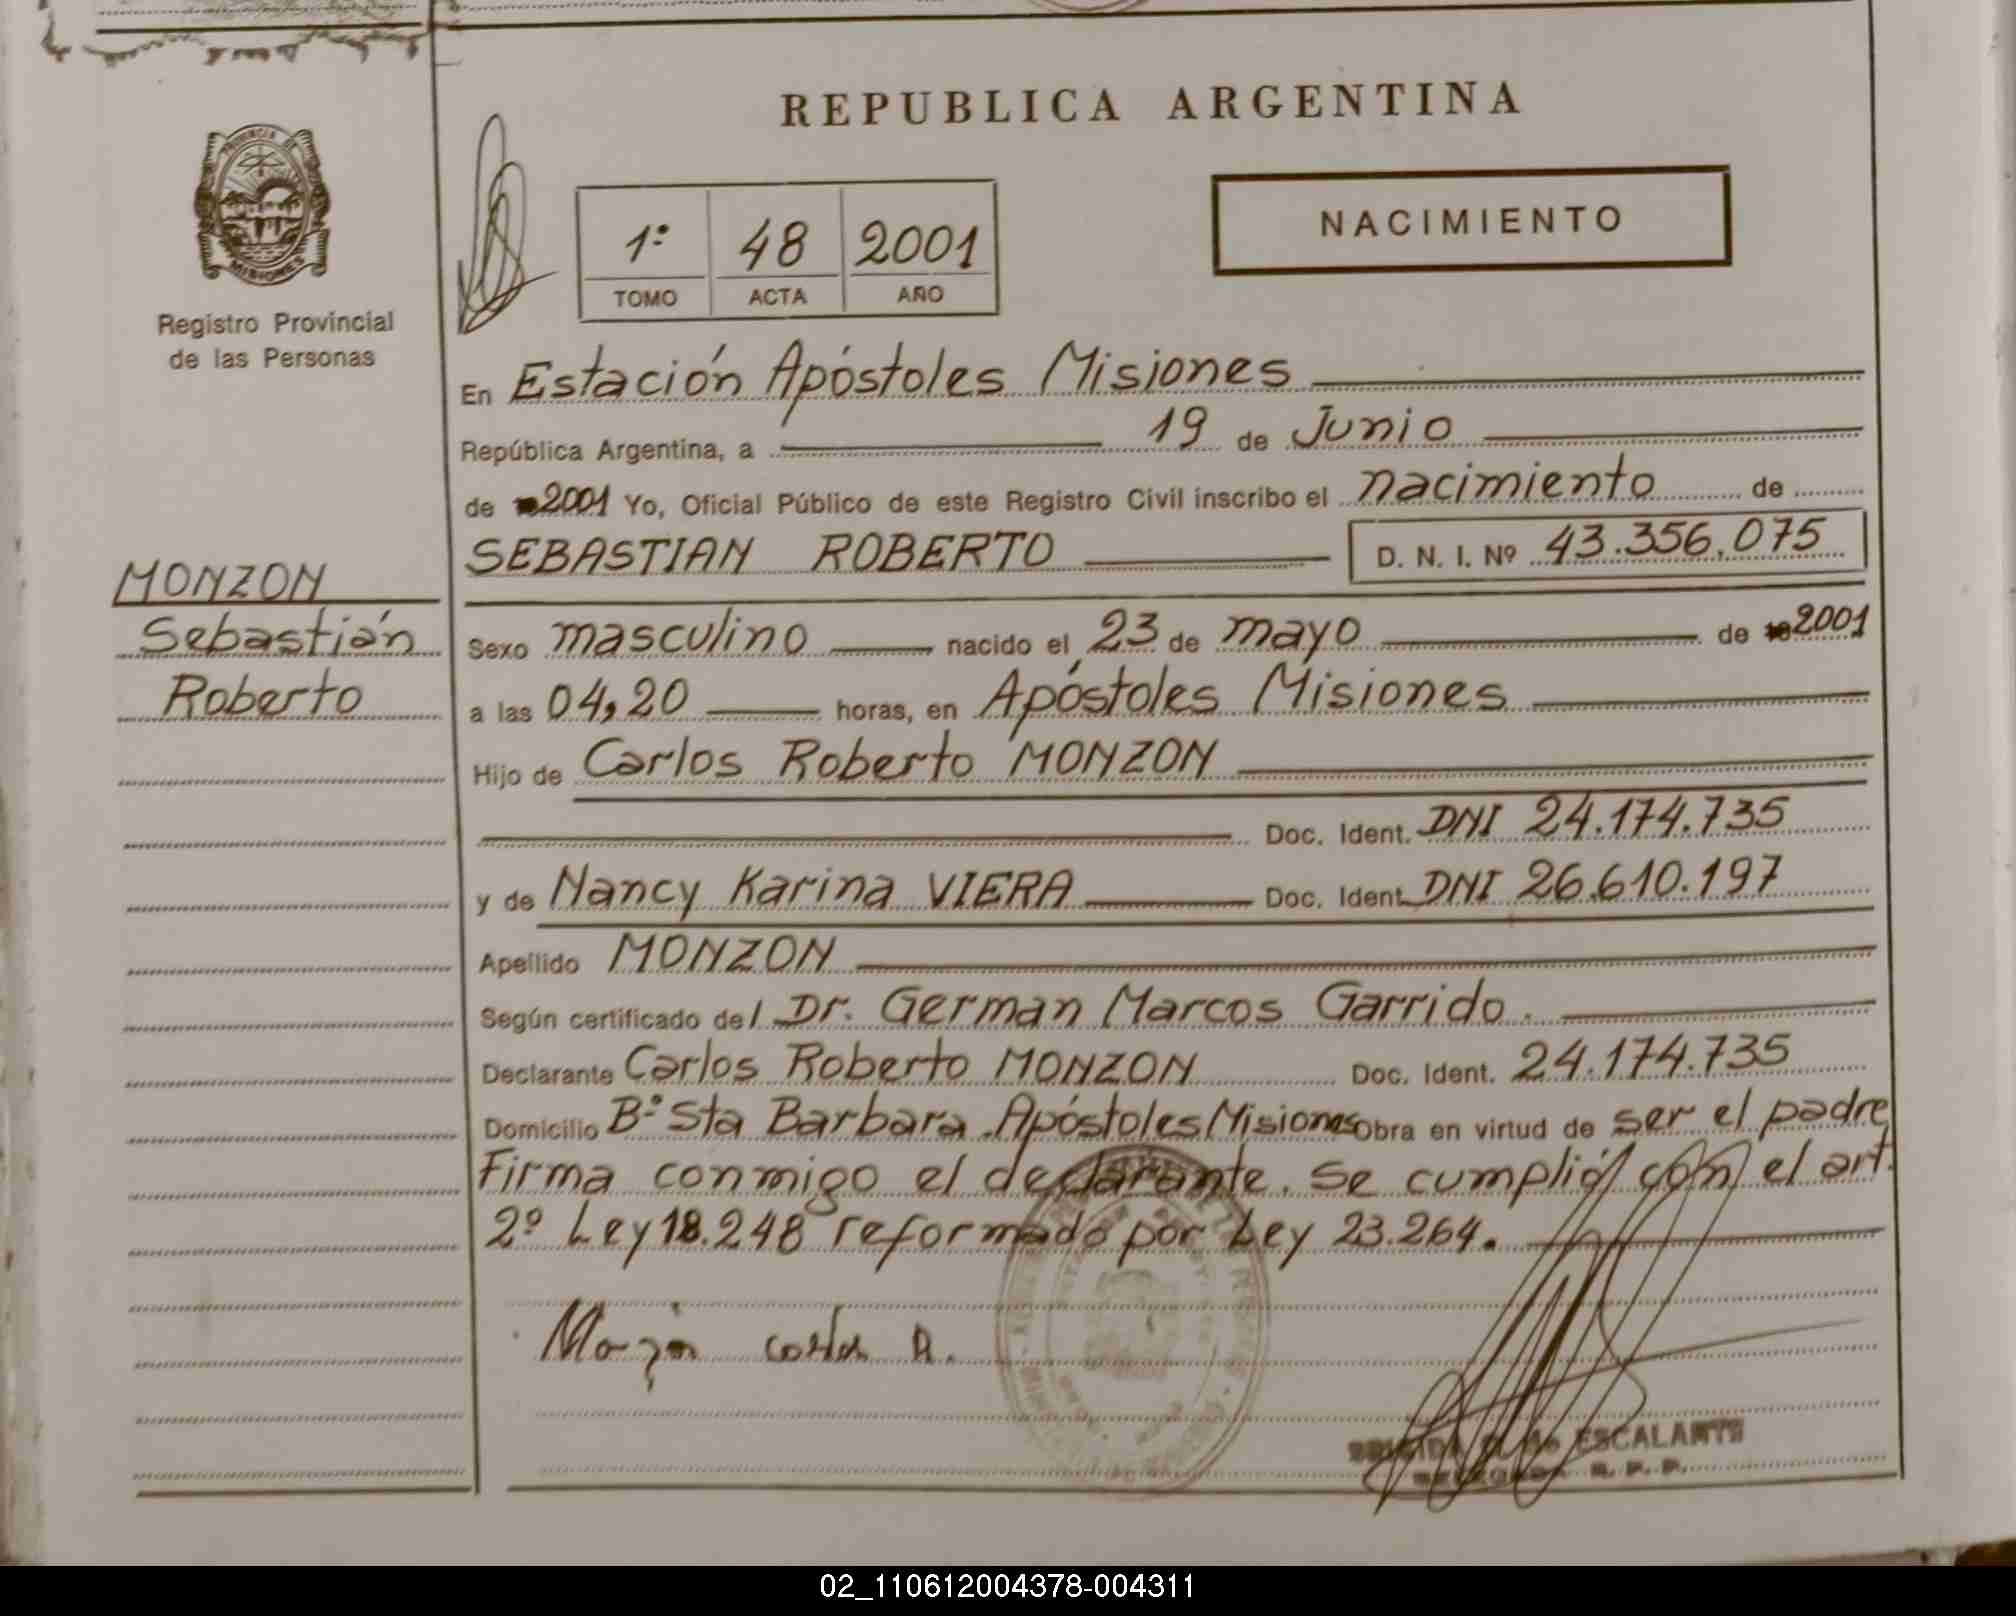 REPUBLICA ARGENTINA
PROVINCIA DE
MISIONES
Registro Provincial
de las Personas
1º 48 2001
TOMO ACTA AÑO
NACIMIENTO
En Estación Apóstoles Misiones
República Argentina, a 19 de Junio
de 2001 Yo, Oficial Público de este Registro Civil inscribo el nacimiento de
SEBASTIAN ROBERTO D. N. I. Nº 43.356.075
MONZON
Sebastián
Roberto
Sexo masculino nacido el 23 de mayo de 2001
a las 04,20 horas, en Apóstoles Misiones
Hijo de Carlos Roberto MONZON
Doc. Ident. DNI 24.174.735
y de Nancy Karina VIERA Doc. Ident. DNI 26.610.197
Apellido MONZON
Según certificado del Dr. German Marcos Garrido.
Declarante Carlos Roberto MONZON Doc. Ident. 24.174.735
Domicilio Bº Sta Barbara Apóstoles Misiones Obra en virtud de ser el padre
Firma conmigo el declarante. Se cumplió con el art.
2º Ley 18.248 reformado por Ley 23.264.
Monzón Carlos R.
ESCALANTE
R. P. P.
02_110612004378-004311